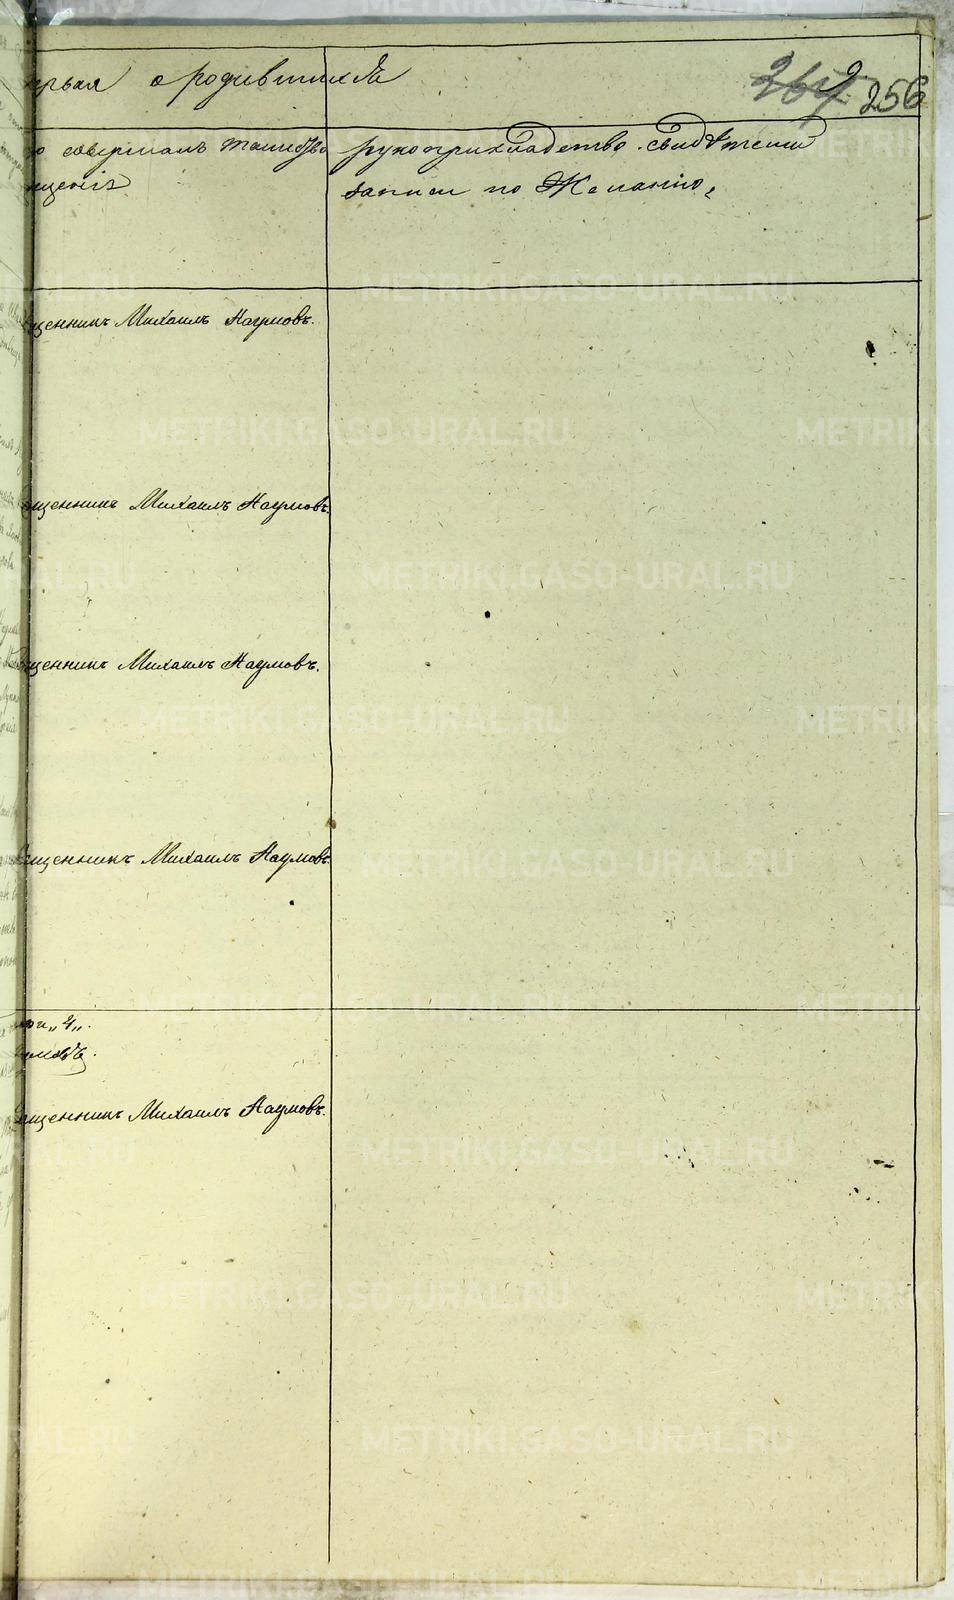 ервая о родившихся
256
о совершалъ таинство
щенія
рукоприкладство свидѣтелей
записи по желанію.
щенникъ Михаилъ Наумовъ.
щенникъ Михаилъ Наумовъ.
щенникъ Михаилъ Наумовъ.
щенникъ Михаилъ Наумовъ.
умовъ.
щенникъ Михаилъ Наумовъ.
METRIKI.GASO-URAL.RU